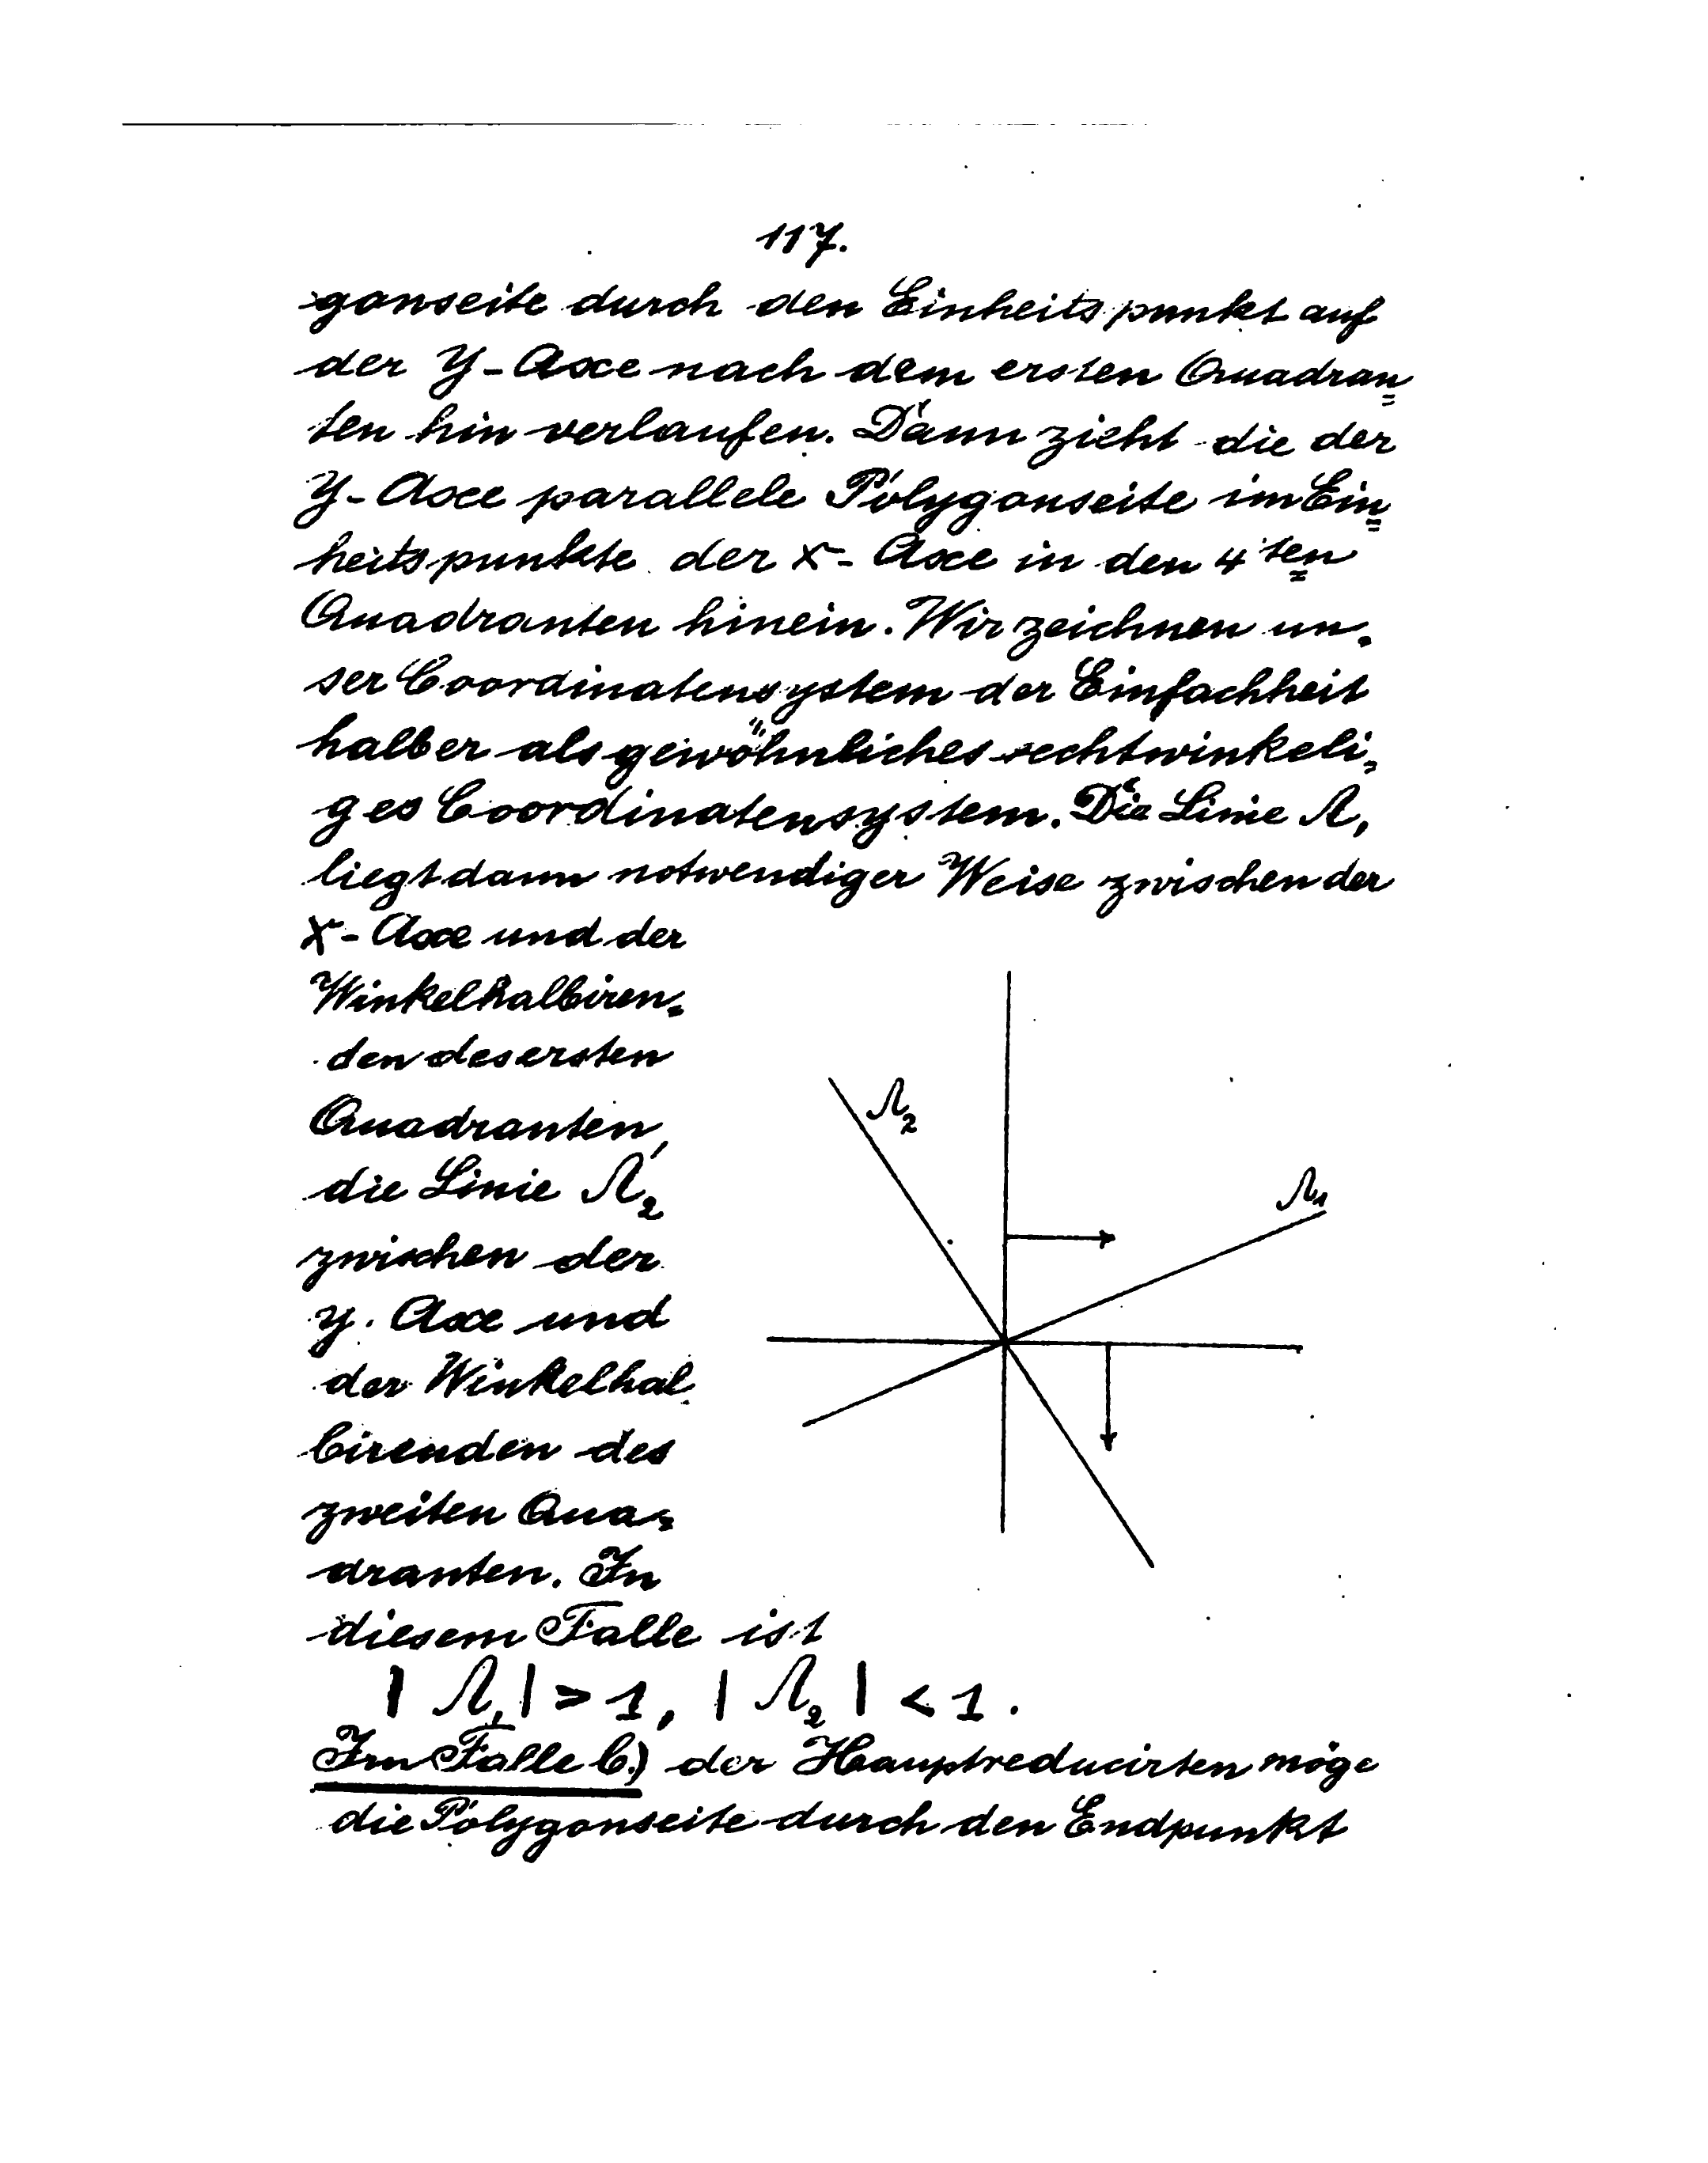 117.
gonseite durch den Einheitspunkt auf
der Y-Axe nach dem ersten Quadran=
ten hin verlaufen. Dann zieht die der
Y-Axe parallele Polygonseite im Ein=
heitspunkte der X-Axe in den 4ten
Quadranten hinein. Wir zeichnen un=
ser Coordinatensystem der Einfachheit
halber als gewöhnliches rechtwinkeli=
ges Coordinatensystem. Die Linie Λ₁
liegt dann notwendiger Weise zwischen der
X-Axe und der
Winkelhalbiren=
den des ersten
Quadranten,
die Linie Λ₂
zwischen der
y. Axe und
der Winkelhal
birenden des
zweiten Qua=
dranten. In
diesem Falle ist
Λ₂
Λ₁
| Λ₁ | > 1, | Λ₂ | < 1.
Im Falle b.) der Hauptreducirten möge
die Polygonseite durch den Endpunkt